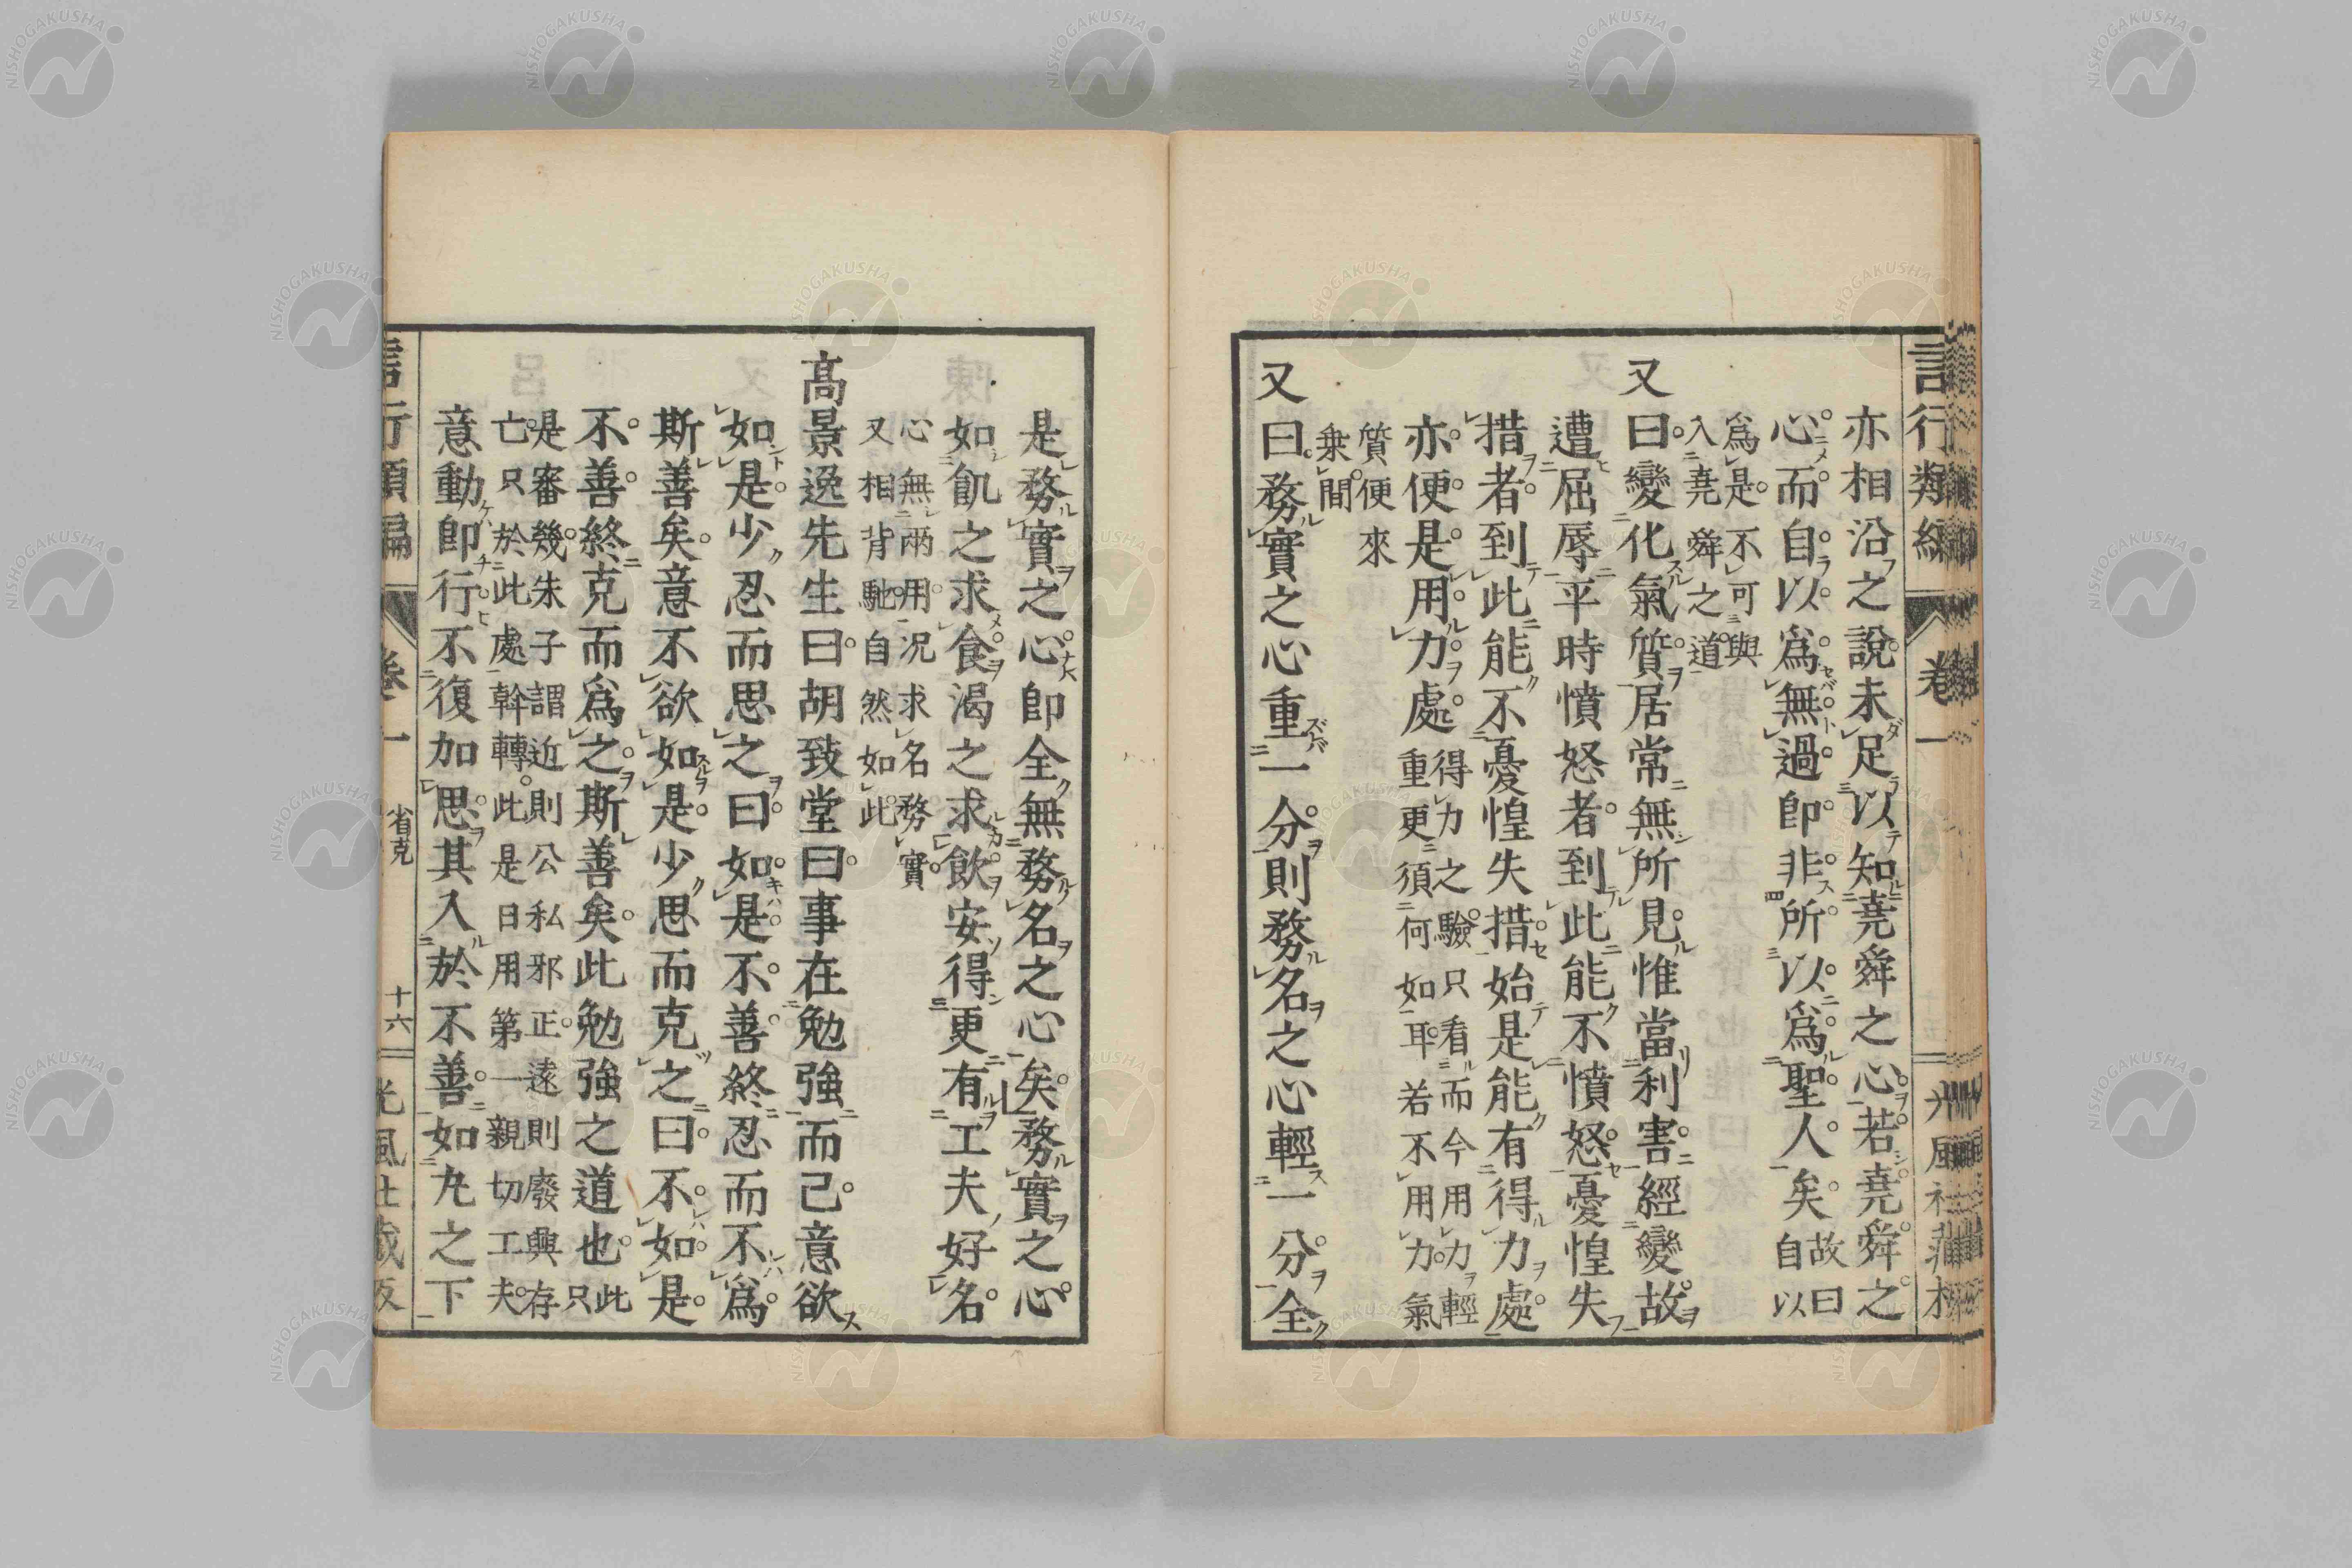 言行類編 卷一
亦相沿之說未足以知堯舜之心若堯舜之
心而自以爲無過卽非所以爲聖人矣故曰自以
爲是不可與
入堯舜之道
又曰變化氣質居常無所見惟當利害經變故
遭屈辱平時憤怒者到此能不憤怒憂惶失
措者到此能不憂惶失措始是能有得力處
亦便是用力處得力之驗只看而今用力輕
重更須何如耳若不用力氣
質便來
乗間
又曰務實之心重一分則務名之心輕一分全
是務實之心卽全無務名之心矣務實之心
如飢之求食渴之求飲安得更有工夫好名
心無兩用况求名務實
又相背馳自然如此
高景逸先生曰胡致堂曰事在勉強而已意欲
如是少忍而思之曰如是不善終忍而不爲
斯善矣意不欲如是少思而克之曰不如是
不善終克而爲之斯善矣此勉強之道也此只
是審幾朱子謂近則公私邪正遠則廢興存
亡只於此處斡轉此是日用第一親切工夫
意動卽行不復加思其入於不善如丸之下
言行類編 卷一 省克 十六 光風社藏板
NISHOGAKUSHA